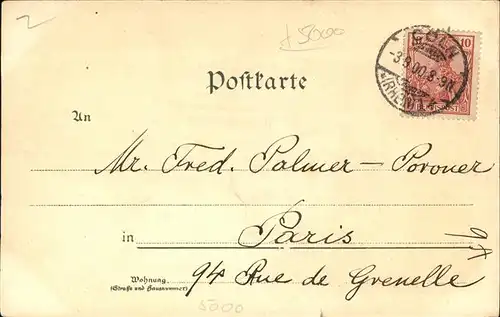 2
5000
CÖLN
10
-3.9.00.8-9N.
(RHEIN) 1
Postkarte
An
Mr. Fred. Palmer-Poroner
in Paris
Wohnung
(Straße und Hausnummer)
94 Rue de Grenelle
5000